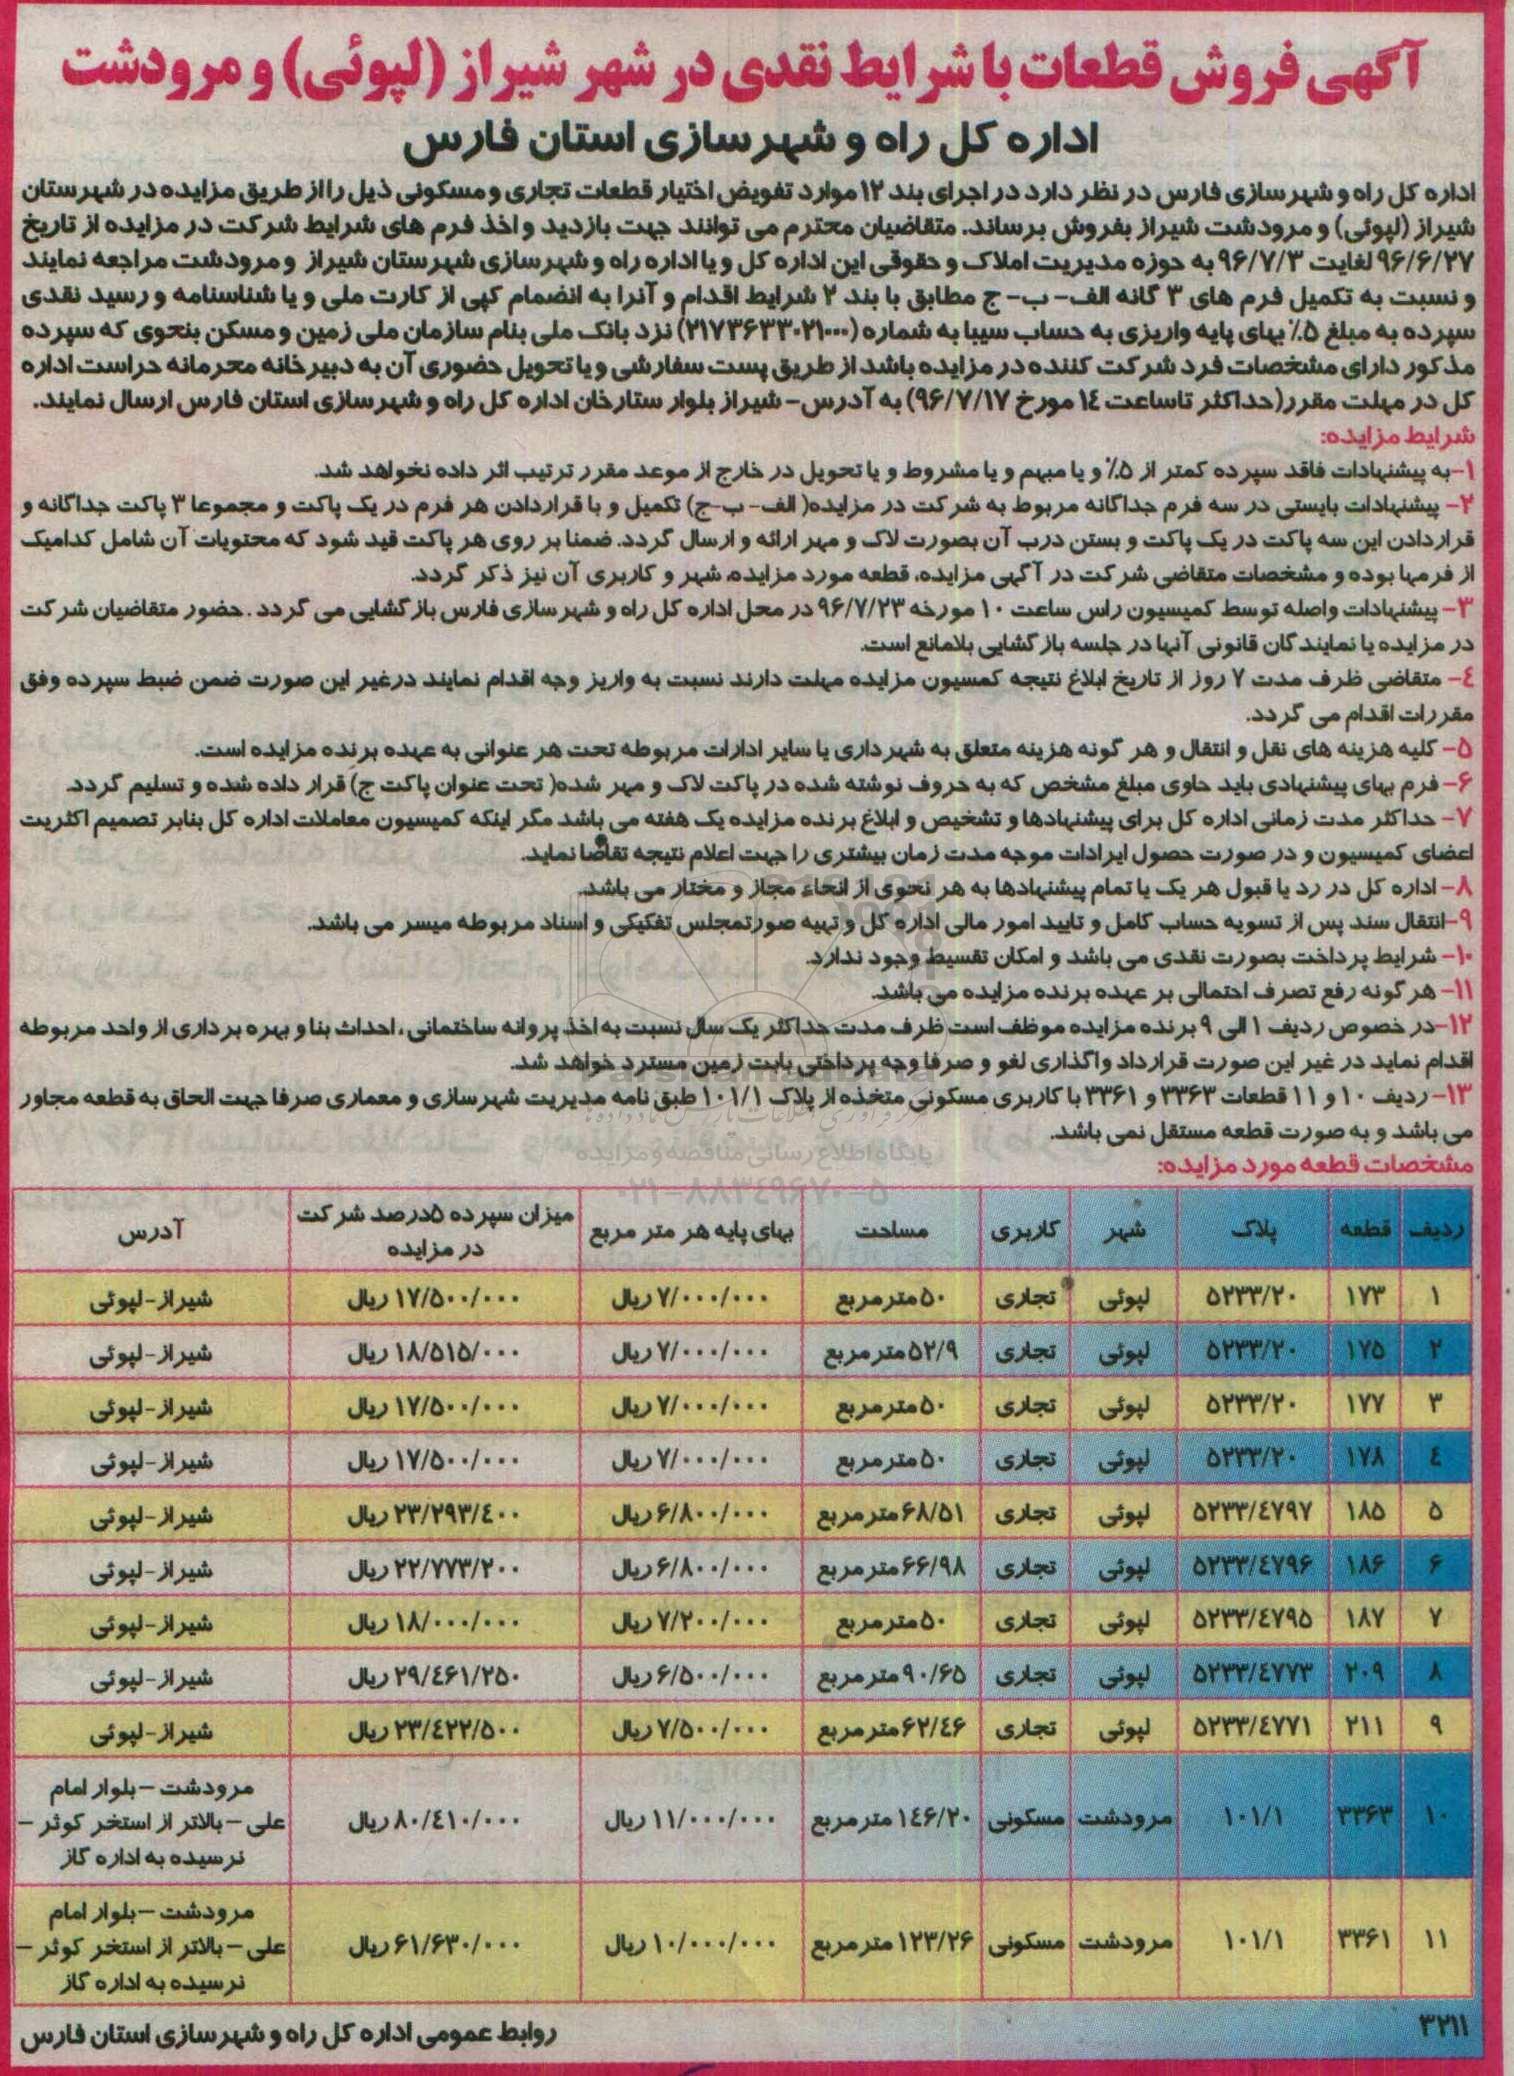 آگهی فروش قطعات با شرایط نقدی در شهر شیراز (لپوئی) و مرودشت
اداره کل راه و شهرسازی استان فارس
اداره کل راه و شهرسازی فارس در نظر دارد در اجرای بند ۱۲ موارد تفویض اختیار قطعات تجاری و مسکونی ذیل را از طریق مزایده در شهرستان
شیراز (لپوئی) و مرودشت شیراز بفروش برساند. متقاضیان محترم می توانند جهت بازدید و اخذ فرم های شرایط شرکت در مزایده از تاریخ
۹۶/۶/۲۷ لغایت ۹۶/۷/۳ به حوزه مدیریت املاک و حقوقی این اداره کل و یا اداره راه و شهرسازی شهرستان شیراز و مرودشت مراجعه نمایند
و نسبت به تکمیل فرم های ۳ گانه الف- ب- ج مطابق با بند ۲ شرایط اقدام و آنرا به انضمام کپی از کارت ملی و یا شناسنامه و رسید نقدی
سپرده به مبلغ ۵٪ بهای پایه واریزی به حساب سیبا به شماره (۲۱۷۳۶۳۳۰۲۱۰۰۰) نزد بانک ملی بنام سازمان ملی زمین و مسکن بنحوی که سپرده
مذکور دارای مشخصات فرد شرکت کننده در مزایده باشد از طریق پست سفارشی و یا تحویل حضوری آن به دبیرخانه محرمانه حراست اداره
کل در مهلت مقرر(حداکثر تاساعت ۱٤ مورخ ۹۶/۷/۱۷) به آدرس- شیراز بلوار ستارخان اداره کل راه و شهرسازی استان فارس ارسال نمایند.
شرایط مزایده:
۱-به پیشنهادات فاقد سپرده کمتر از ۵٪ و یا مبهم و یا مشروط و یا تحویل در خارج از موعد مقرر ترتیب اثر داده نخواهد شد.
۲- پیشنهادات بایستی در سه فرم جداگانه مربوط به شرکت در مزایده( الف- ب-ج) تکمیل و با قراردادن هر فرم در یک پاکت و مجموعا ۳ پاکت جداگانه و
قراردادن این سه پاکت در یک پاکت و بستن درب آن بصورت لاک و مهر ارائه و ارسال گردد. ضمنا بر روی هر پاکت قید شود که محتویات آن شامل کدامیک
از فرمها بوده و مشخصات متقاضی شرکت در آگهی مزایده، قطعه مورد مزایده، شهر و کاربری آن نیز ذکر گردد.
۳- پیشنهادات واصله توسط کمیسیون راس ساعت ۱۰ مورخه ۹۶/۷/۲۳ در محل اداره کل راه و شهرسازی فارس بازگشایی می گردد . حضور متقاضیان شرکت
در مزایده یا نمایندگان قانونی آنها در جلسه بازگشایی بلامانع است.
٤- متقاضی ظرف مدت ۷ روز از تاریخ ابلاغ نتیجه کمسیون مزایده مهلت دارند نسبت به واریز وجه اقدام نمایند درغیر این صورت ضمن ضبط سپرده وفق
مقررات اقدام می گردد.
۵- کلیه هزینه های نقل و انتقال و هر گونه هزینه متعلق به شهرداری یا سایر ادارات مربوطه تحت هر عنوانی به عهده برنده مزایده است.
۶- فرم بهای پیشنهادی باید حاوی مبلغ مشخص که به حروف نوشته شده در پاکت لاک و مهر شده( تحت عنوان پاکت ج) قرار داده شده و تسلیم گردد.
۷- حداکثر مدت زمانی اداره کل برای پیشنهادها و تشخیص و ابلاغ برنده مزایده یک هفته می باشد مگر اینکه کمیسیون معاملات اداره کل بنابر تصمیم اکثریت
اعضای کمیسیون و در صورت حصول ایرادات موجه مدت زمان بیشتری را جهت اعلام نتیجه تقاضا نماید.
۸- اداره کل در رد یا قبول هر یک یا تمام پیشنهادها به هر نحوی از انحاء مجاز و مختار می باشد.
۹-انتقال سند پس از تسویه حساب کامل و تایید امور مالی اداره کل و تهیه صورتمجلس تفکیکی و اسناد مربوطه میسر می باشد.
۱۰- شرایط پرداخت بصورت نقدی می باشد و امکان تقسیط وجود ندارد.
۱۱- هر گونه رفع تصرف احتمالی بر عهده برنده مزایده می باشد.
۱۲-در خصوص ردیف ۱ الی ۹ برنده مزایده موظف است ظرف مدت حداکثر یک سال نسبت به اخذ پروانه ساختمانی ، احداث بنا و بهره برداری از واحد مربوطه
اقدام نماید در غیر این صورت قرارداد واگذاری لغو و صرفا وجه پرداختی بابت زمین مسترد خواهد شد.
۱۳- ردیف ۱۰ و ۱۱ قطعات ۳۳۶۳ و ۳۳۶۱ با کاربری مسکونی متخذه از پلاک ۱۰۱/۱ طبق نامه مدیریت شهرسازی و معماری صرفا جهت الحاق به قطعه مجاور
می باشد و به صورت قطعه مستقل نمی باشد.
پایگاه اطلاع رسانی مناقصه و مزایده
مشخصات قطعه مورد مزایده:
۰۲۱-۸۸۳٤۹۶۷۰-۵
ردیف قطعه پلاک شهر کاربری مساحت بهای پایه هر متر مربع میزان سپرده ۵درصد شرکت در مزایده آدرس
۱ ۱۷۳ ۵۲۳۳/۲۰ لپوئی تجاری ۵۰مترمربع ۷/۰۰۰/۰۰۰ریال ۱۷/۵۰۰/۰۰۰ ریال شیراز-لپوئی
۲ ۱۷۵ ۵۲۳۳/۲۰ لپوئی تجاری ۵۲/۹مترمربع ۷/۰۰۰/۰۰۰ریال ۱۸/۵۱۵/۰۰۰ ریال شیراز-لپوئی
۳ ۱۷۷ ۵۲۳۳/۲۰ لپوئی تجاری ۵۰مترمربع ۷/۰۰۰/۰۰۰ریال ۱۷/۵۰۰/۰۰۰ ریال شیراز-لپوئی
٤ ۱۷۸ ۵۲۳۳/۲۰ لپوئی تجاری ۵۰مترمربع ۷/۰۰۰/۰۰۰ریال ۱۷/۵۰۰/۰۰۰ ریال شیراز-لپوئی
۵ ۱۸۵ ۵۲۳۳/٤۷۹۷ لپوئی تجاری ۶۸/۵۱مترمربع ۶/۸۰۰/۰۰۰ریال ۲۳/۲۹۳/٤۰۰ ریال شیراز-لپوئی
۶ ۱۸۶ ۵۲۳۳/٤۷۹۶ لپوئی تجاری ۶۶/۹۸مترمربع ۶/۸۰۰/۰۰۰ریال ۲۲/۷۷۳/۲۰۰ ریال شیراز-لپوئی
۷ ۱۸۷ ۵۲۳۳/٤۷۹۵ لپوئی تجاری ۵۰مترمربع ۷/۲۰۰/۰۰۰ریال ۱۸/۰۰۰/۰۰۰ ریال شیراز-لپوئی
۸ ۲۰۹ ۵۲۳۳/٤۷۷۳ لپوئی تجاری ۹۰/۶۵مترمربع ۶/۵۰۰/۰۰۰ریال ۲۹/٤۶۱/۲۵۰ ریال شیراز-لپوئی
۹ ۲۱۱ ۵۲۳۳/٤۷۷۱ لپوئی تجاری ۶۲/٤۶مترمربع ۷/۵۰۰/۰۰۰ریال ۲۳/٤۲۲/۵۰۰ ریال شیراز-لپوئی
۱۰ ۳۳۶۳ ۱۰۱/۱ مرودشت مسکونی ۱٤۶/۲۰ مترمربع ۱۱/۰۰۰/۰۰۰ ریال ۸۰/٤۱۰/۰۰۰ ریال مرودشت –بلوار امام علی – بالاتر از استخر کوثر – نرسیده به اداره گاز
۱۱ ۳۳۶۱ ۱۰۱/۱ مرودشت مسکونی ۱۲۳/۲۶ مترمربع ۱۰/۰۰۰/۰۰۰ ریال ۶۱/۶۳۰/۰۰۰ ریال مرودشت –بلوار امام علی – بالاتر از استخر کوثر – نرسیده به اداره گاز
۳۲۱۱ روابط عمومی اداره کل راه و شهرسازی استان فارس